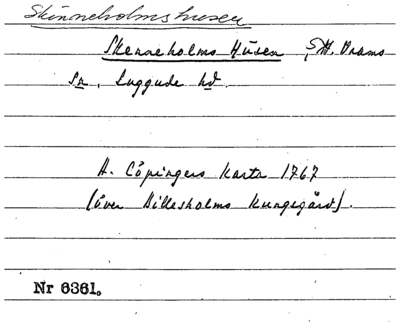 Skinneholmshusen
Skenneholms Húsen, S.W. Brams
Sn, Luggude hd.
A. Cöpingers Karta 1767
(över Billesholms Kungsgård).
Nr 6361.